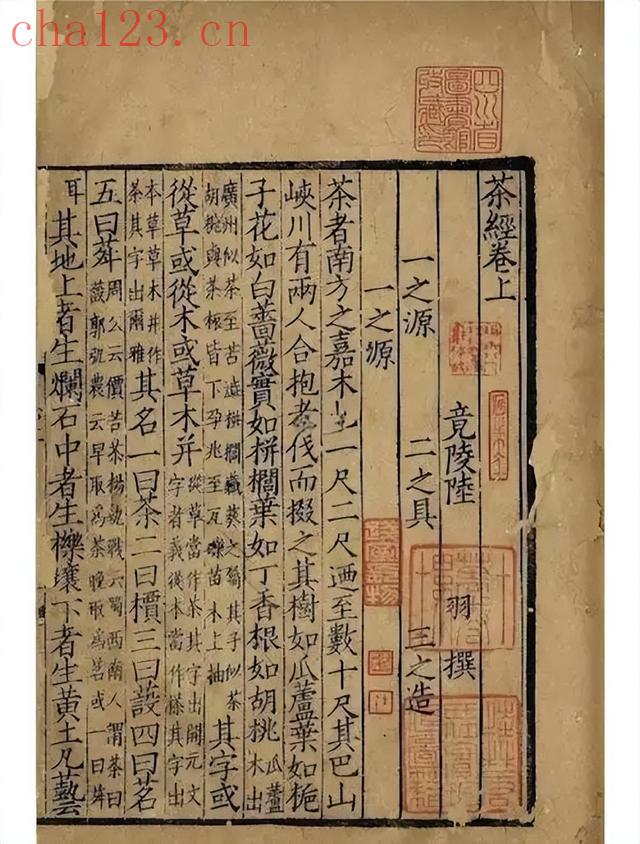 cha123.cn
四川省
圖書館
收藏印
茶經卷上
竟陵陸 羽 撰
一之源 二之具 三之造
一之源
茶者南方之嘉木也一尺二尺迺至數十尺其巴山
峽川有兩人合抱者伐而掇之其樹如瓜蘆葉如梔
子花如白薔薇實如栟櫚葉如丁香根如胡桃 瓜蘆木出
廣州似茶至苦澁栟櫚藏葵之屬其子似茶胡桃與茶根皆下孕兆至瓦礫苗木上抽 其字或
從草或從木或草木并 從草當作茶其字出開元文字者義從木當作搽其字出
本草草木并作茶其字出爾雅 其名一曰茶二曰檟三曰蔎四曰茗
五曰荈 周公云價苦茶揚執戟云蜀西南人謂茶曰蔎郭弘農云早取爲茶晚取爲茗或一曰荈
耳其地上者生爛石中者生櫟壤下者生黃土凡藝